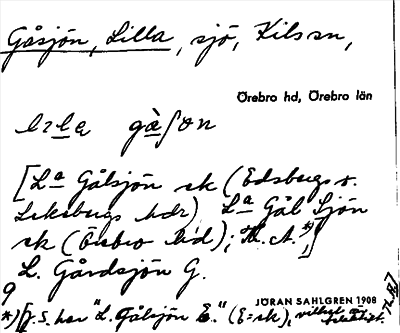 Gåsjön, Lilla, sjö, Kils sn,
Örebro hd, Örebro län
lɩla gàſon
[La Gålsjön sk (Edsbergs o.
Lekebergs hdr) La Gål Sjön
sk (Örebro hd); Th. A.*)]
L. Gårdsjön G.
9
JÖRAN SAHLGREN 1908
*) [J. S. har "L. Gålsjön E." (E=sk),